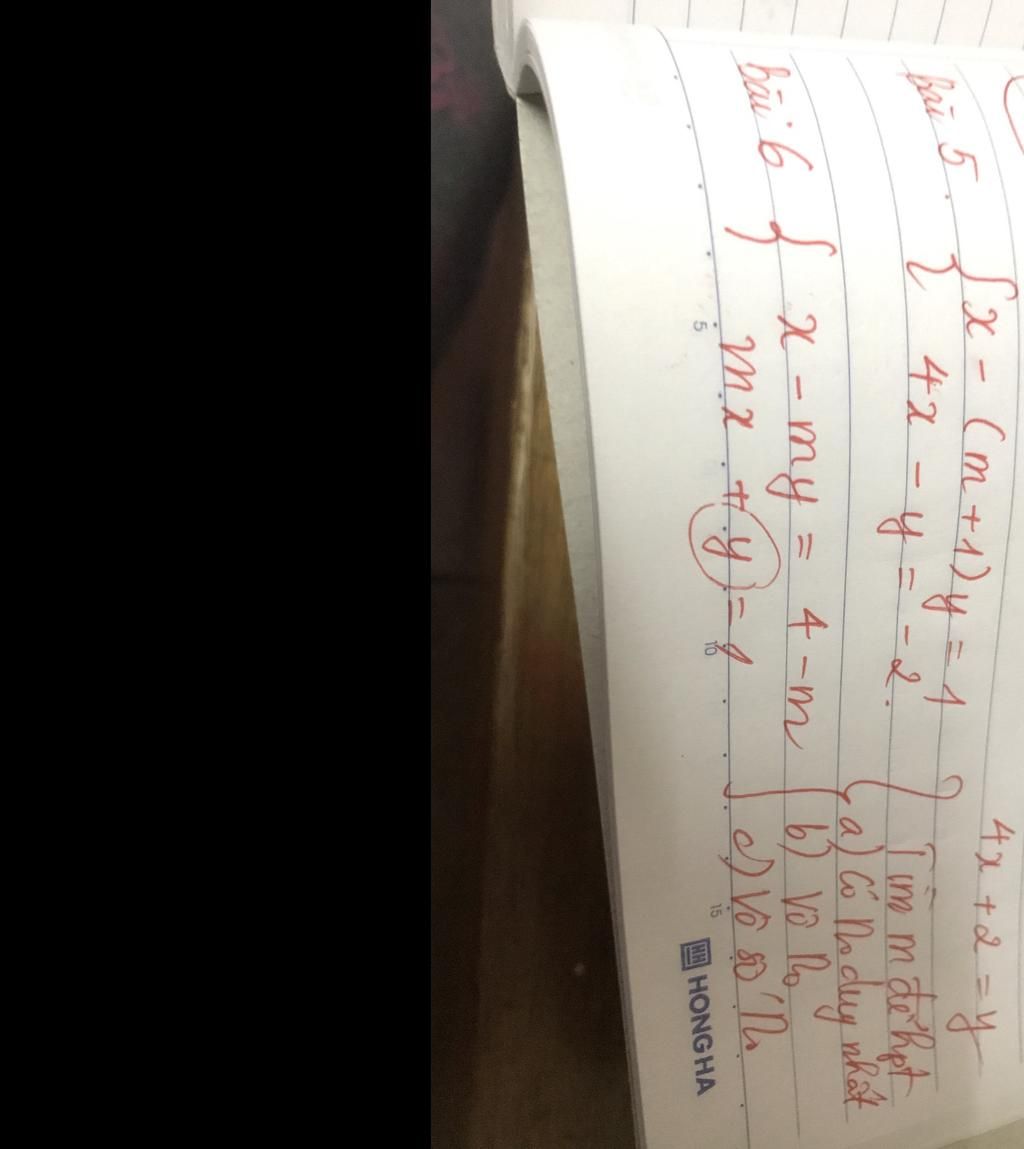 4x + 2 = y
bài 5. { x - (m+1)y = 1
4x - y = -2.
Tìm m để hpt
a) Có n₀ duy nhất
b) Vô n₀
c) Vô số n₀
bài 6 { x - my = 4 - m
mx + y = 1
5 10 15
HONG HA